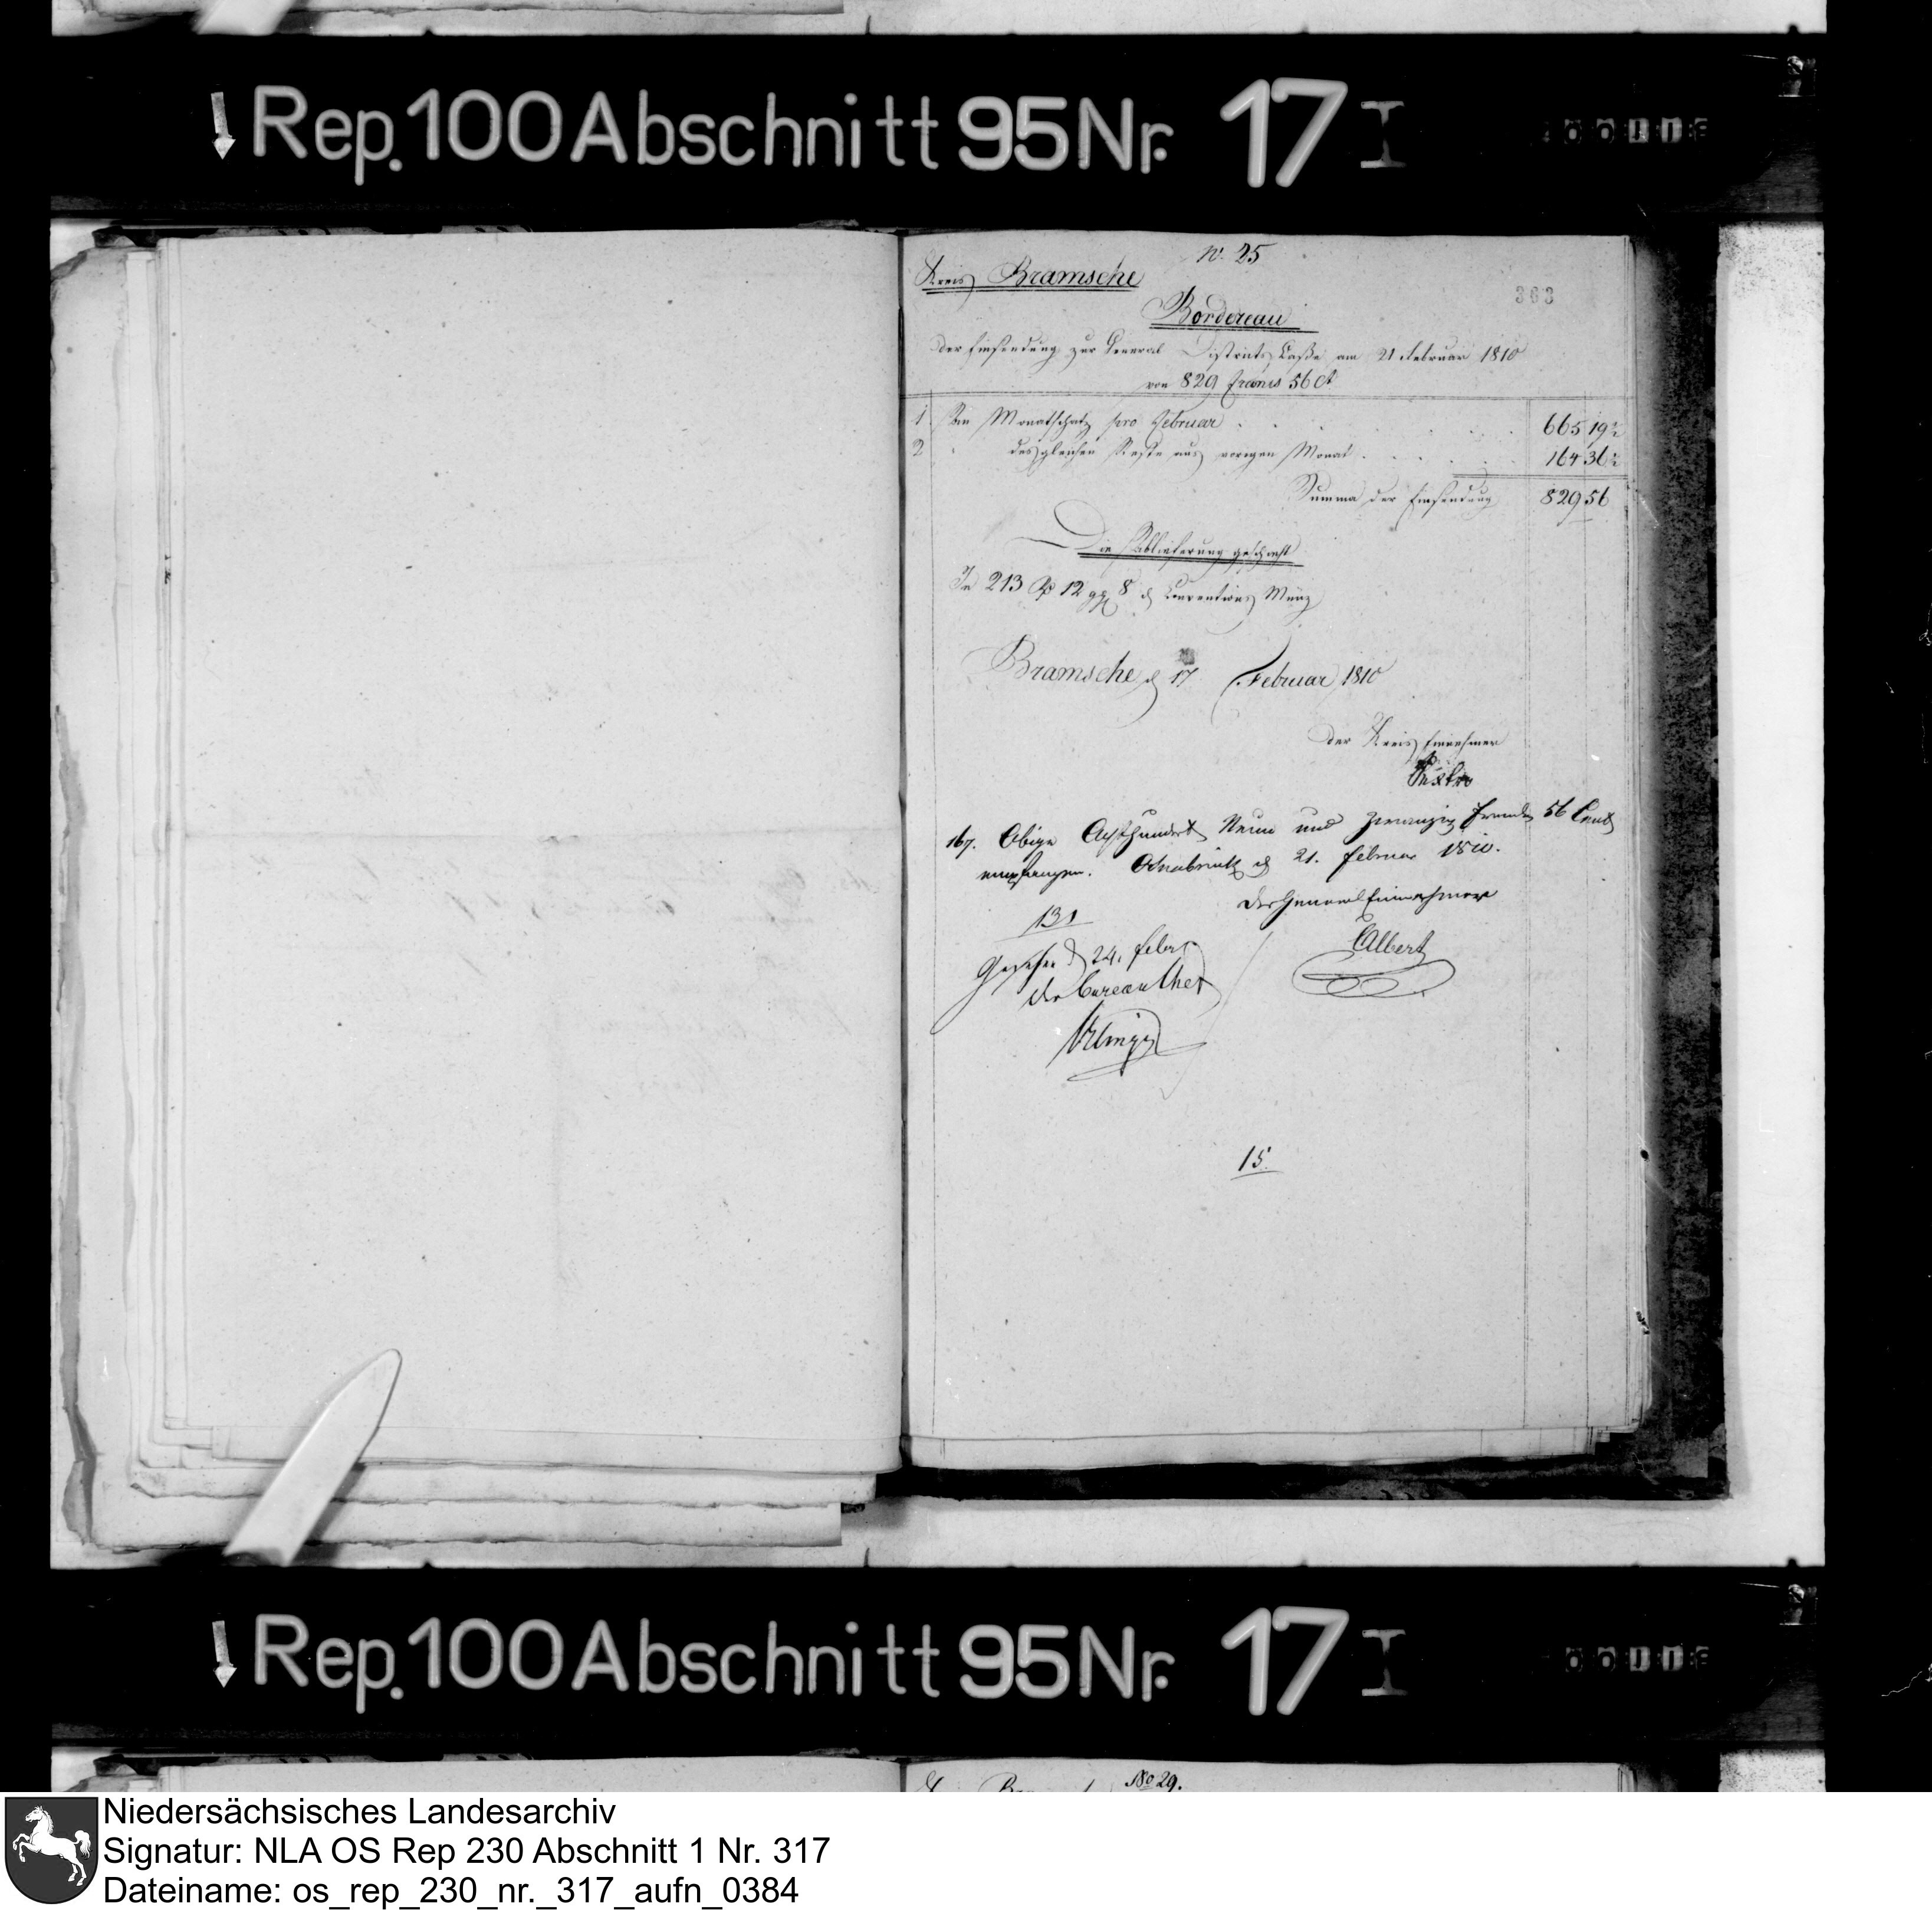 Rep. 100 Abschnitt 95 Nr. 17 I
N. 25
Kreis Bramsche
363
Bordereau
der Einsendung zur General Districts Casse am 21 Februar 1810
von 829 Francs 56 Ct
1 An Monatschatz pro Februar 665 19½
2 " desgleichen Reste aus vorigen Monat 164 36½
Summa der Einsendung 829 56
Die Ablieferung geschieht
In 213 Rp 12 ggr 8 d Conventions Münz
Bramsche d 17 Februar 1810
Der Kreis Einnehmer
167. Obige Achthundert Neun und zwanzig Franks 56 Cent
empfangen. Osnabrück d 21. Februar 1810.
Der General Einnehmer
131
Albert
Gesehen d 24. Febr
der Bureau Chef
15.
Rep. 100 Abschnitt 95 Nr. 17 I
No 29.
Niedersächsisches Landesarchiv
Signatur: NLA OS Rep 230 Abschnitt 1 Nr. 317
Dateiname: os_rep_230_nr._317_aufn_0384